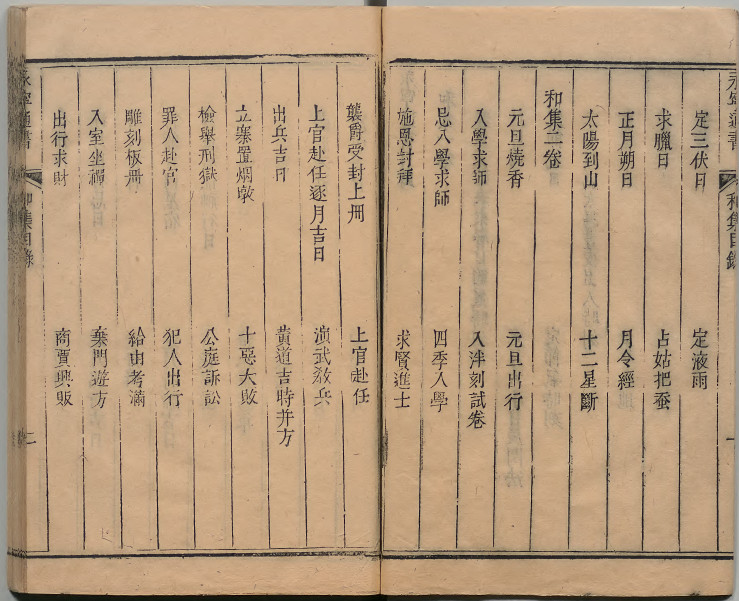 永寧通書 和集目錄 一
定三伏日 定液雨
求臘日 占姑把蚕
正月朔日 月令經
太陽到山 十二星斷
和集二卷
元旦燒香 元旦出行
入學求師 入泮刻試卷
忌入學求師 四季入學
施恩封拜 求賢進士
襲爵受封上冊 上官赴任
上官赴任逐月吉日 演武教兵
出兵吉日 黃道吉時并方
立寨置烟墩 十惡大敗
檢舉刑獄 公庭訴訟
罪人赴官 犯人出行
雕刻板冊 給由考滿
入室坐禪 桒門遊方
出行求財 商賈興販
永寧通書 和集目錄 二